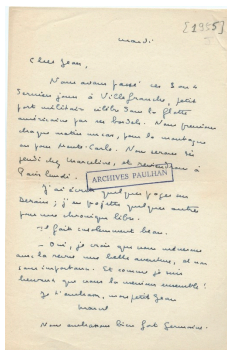 [1955]
mardi
Cher Jean,
Nous avons passé ces 3 ou 4
derniers jours à Villefranche, petit
port militaire célèbre dans la flotte
américaine par ses bordels. Nous prenions
chaque matin un car, pour la montagne
ou pour Monte-Carlo. Nous serons ici
jeudi chez Marceline, et
Paris lundi.
ARCHIVES PAULHAN
J'ai écrit quelques pages sur
Derain ; j'en projette quelques autres
pour une chronique libre.
Il fait insolemment beau.
— Oui, je crois que nous
avec la revue une belle aventure, et
sans importance. Et comme je suis
heureux que nous la menions ensemble !
Je t'embrasse, mon petit Jean
Marcel
Nous embrassons bien fort Germaine.